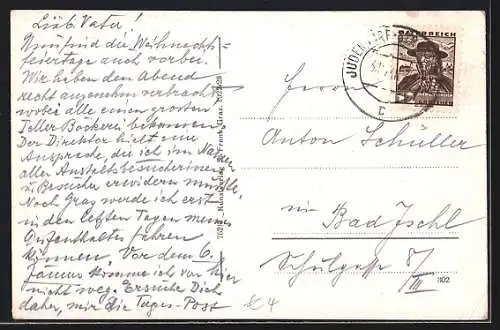 Lieb. Vater!
Nun sind die Weihnachts=
feiertage auch vorbei.
Wir haben den Abend
recht angenehm verbracht
wobei alle einen grossen
Teller Bäckerei bekamen.
Der Direktor hielt eine
Ansprache, die ich im Namen
aller Anstaltsbesucherinnen
u. Besucher erwidern mußte.
Nach Graz werde ich erst
in den letzten Tagen meines
Aufenthaltes fahren
können. Vor dem 6.
Jänner komme ich von hier
nicht weg. Ersuche Dich
daher, mir die Tages-Post
Frank, Graz.
JUDENDORF
ÖSTERREICH
Herrn
Anton Schüller
in Bad Ischl
Schulgasse 8/
III
302